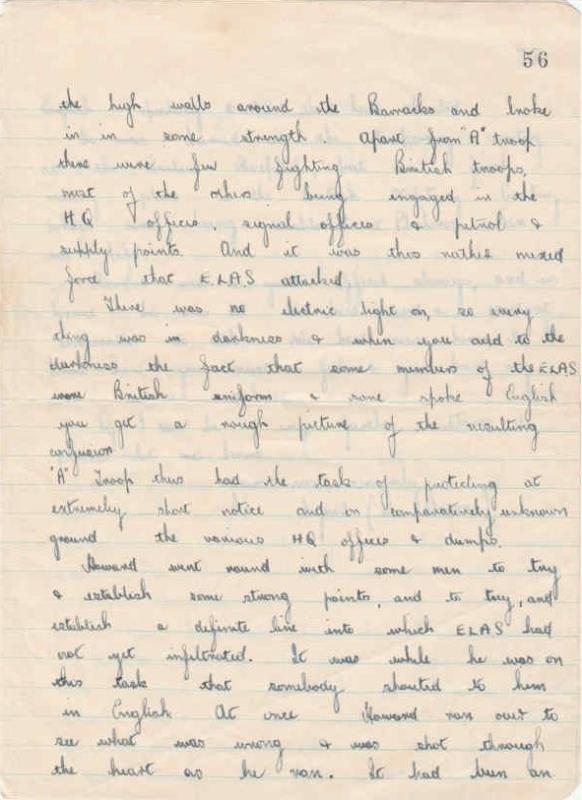 56
the high walls around the Barracks and broke
in in some strength. Apart from "A" troop
there were few fighting British troops,
most of the others being engaged in the
HQ offices, signal offices & petrol &
supply points. And it was this rather mixed
force that ELAS attacked.
There was no electric light on, so every
thing was in darkness & when you add to the
darkness the fact that some members of the ELAS
wore British uniform & some spoke English
you get a rough picture of the resulting
confusion
"A" Troop thus had the task of protecting at
extremely short notice and on comparatively unknown
ground the various HQ offices & dumps.
Howard went round with some men to try
& establish some strong points, and to try, and
establish a definite line into which ELAS had
not yet infiltrated. It was while he was on
this task that somebody shouted to him
in English. At once Howard ran over to
see what was wrong & was shot through
the heart as he ran. It had been an